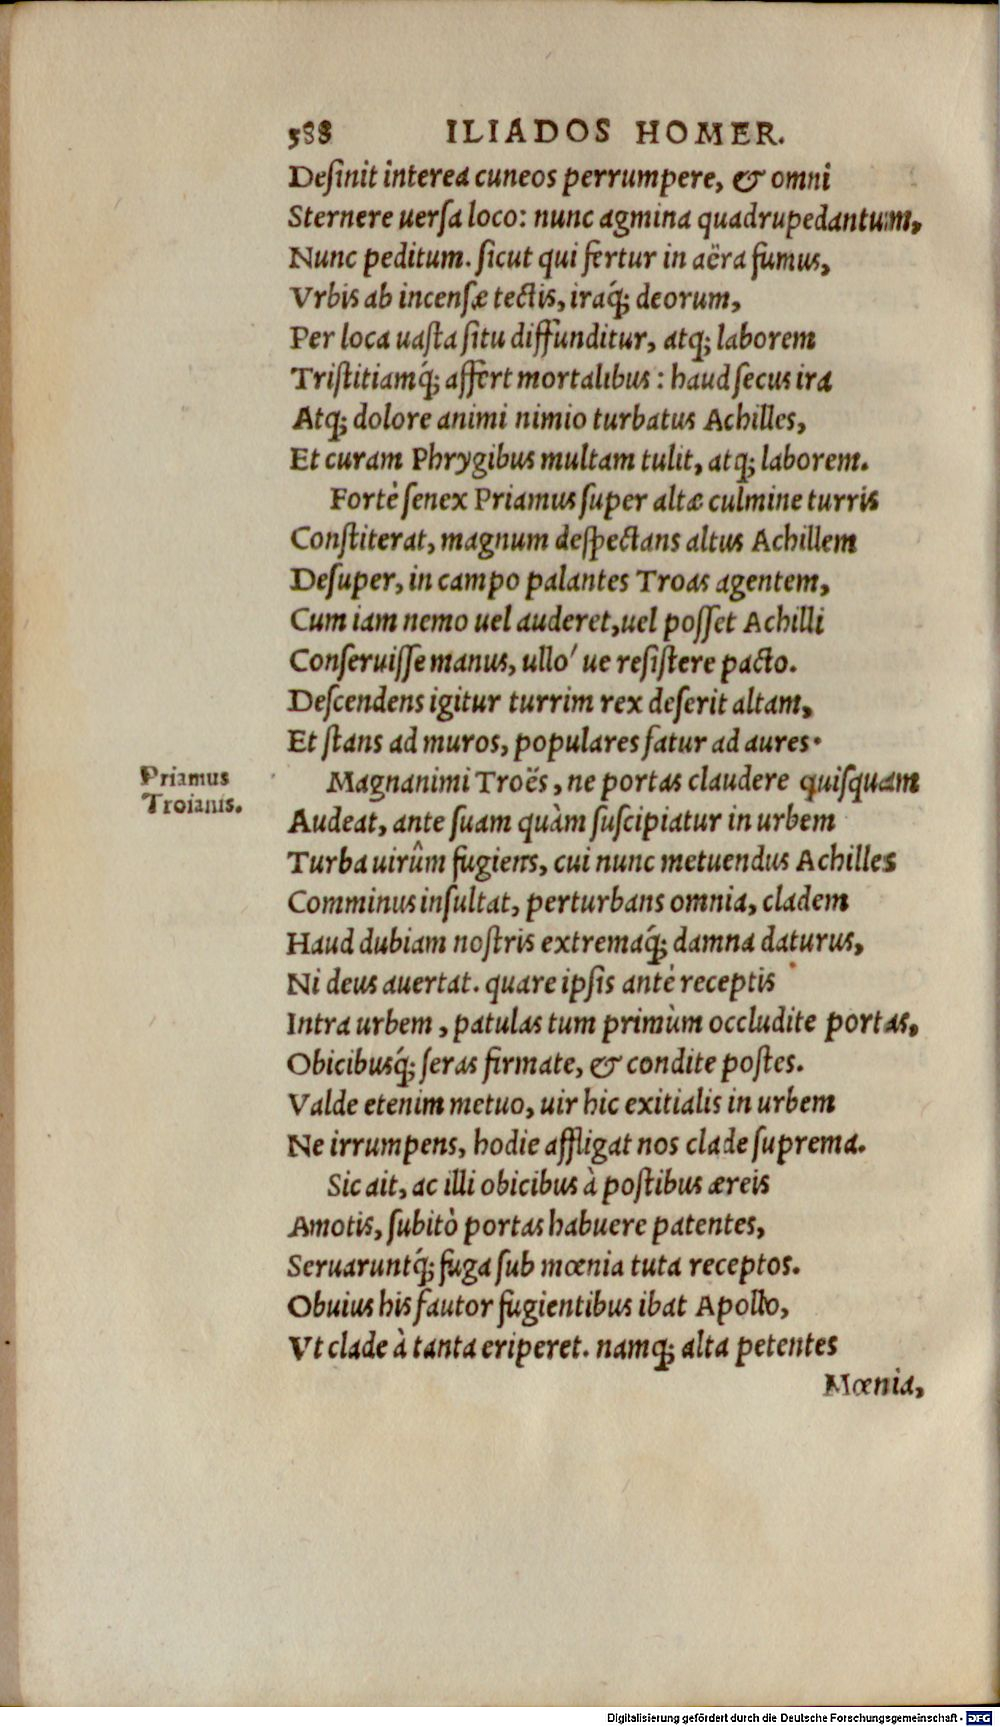 588 ILIADOS HOMER.
Desinit interea cuneos perrumpere, & omni
Sternere uersa loco: nunc agmina quadrupedantum,
Nunc peditum. sicut qui fertur in aëra fumus,
Vrbis ab incensæ tectis, iraq́; deorum,
Per loca uasta situ diffunditur, atq; laborem
Tristitiamq́; affert mortalibus: haud secus ira
Atq; dolore animi nimio turbatus Achilles,
Et curam Phrygibus multam tulit, atq; laborem.
Fortè senex Priamus super altæ culmine turris
Constiterat, magnum despectans altus Achillem
Desuper, in campo palantes Troas agentem,
Cum iam nemo uel auderet, uel posset Achilli
Conseruisse manus, ullo' ue resistere pacto.
Descendens igitur turrim rex deserit altam,
Et stans ad muros, populares fatur ad aures.
Priamus
Troianis.
Magnanimi Troës, ne portas claudere quisquam
Audeat, ante suam quàm suscipiatur in urbem
Turba uirûm fugiens, cui nunc metuendus Achilles
Comminus insultat, perturbans omnia, cladem
Haud dubiam nostris extremaq́; damna daturus,
Ni deus auertat. quare ipsis antè receptis
Intra urbem, patulas tum primùm occludite portas,
Obicibusq́; seras firmate, & condite postes.
Valde etenim metuo, uir hic exitialis in urbem
Ne irrumpens, hodie affligat nos clade suprema.
Sic ait, ac illi obicibus à postibus æreis
Amotis, subitò portas habuere patentes,
Seruaruntq́; fuga sub mœnia tuta receptos.
Obuius his fautor fugientibus ibat Apollo,
Vt clade à tanta eriperet. namq; alta petentes
Mœnia,
Digitalisierung gefördert durch die Deutsche Forschungsgemeinschaft - DFG